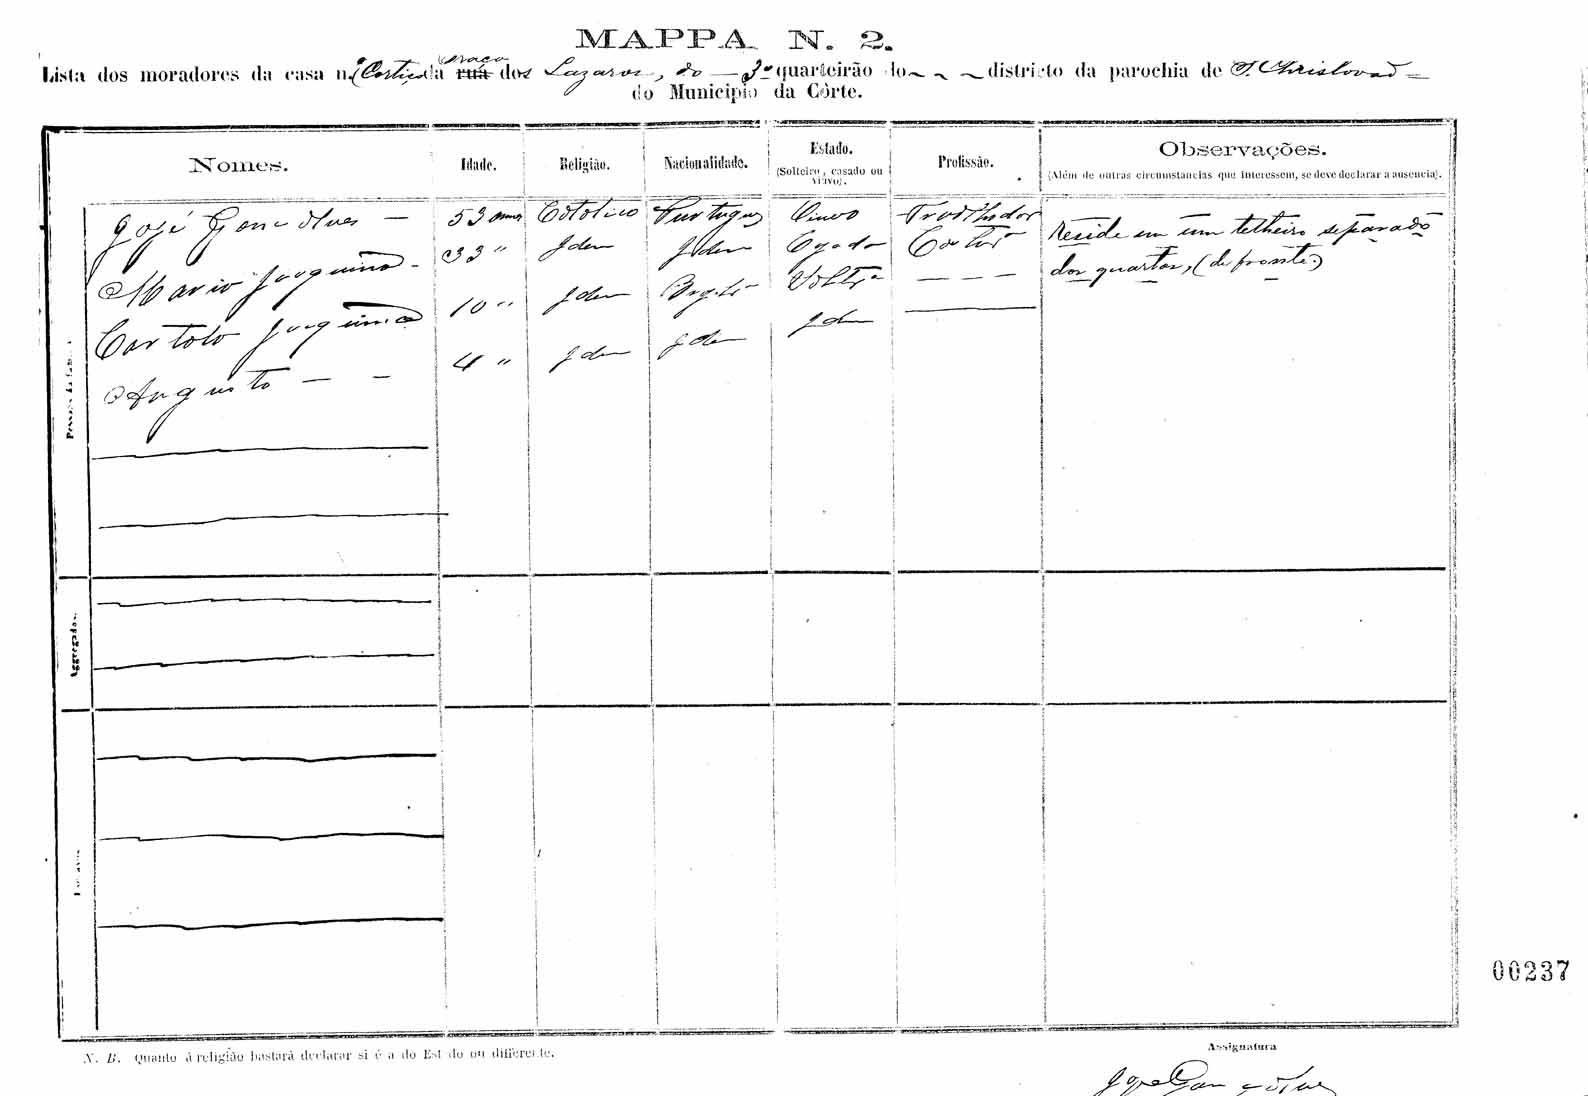 MAPPA N. 2.
Lista dos moradores da casa n. (Cortiço) da rua praça dos Lazaros, do — 3º quarteirão do districto da parochia de S. Christovaõ
do Municipio da Côrte.
Nomes. Idade. Religião. Nacionalidade. Estado. (Solteiro, casado ou viuvo). Profissão. Observações. (Além de outras circumstancias que interessem, se deve declarar a ausencia).
José Gonçalves — 53 annos Catolico Portuguez Viuvo Trabalhador Reside em um telheiro separado
Maria Joaquina - 33 " Idem Idem dos quartos, (de fronte)
Joaquina 10 " Idem — — —
Augusto — — 4 " Idem Idem Idem
Aggregados.
00237
N. B. Quanto á religião bastará declarar si é a do Estado ou differente.
Assignatura
José Gonçalves